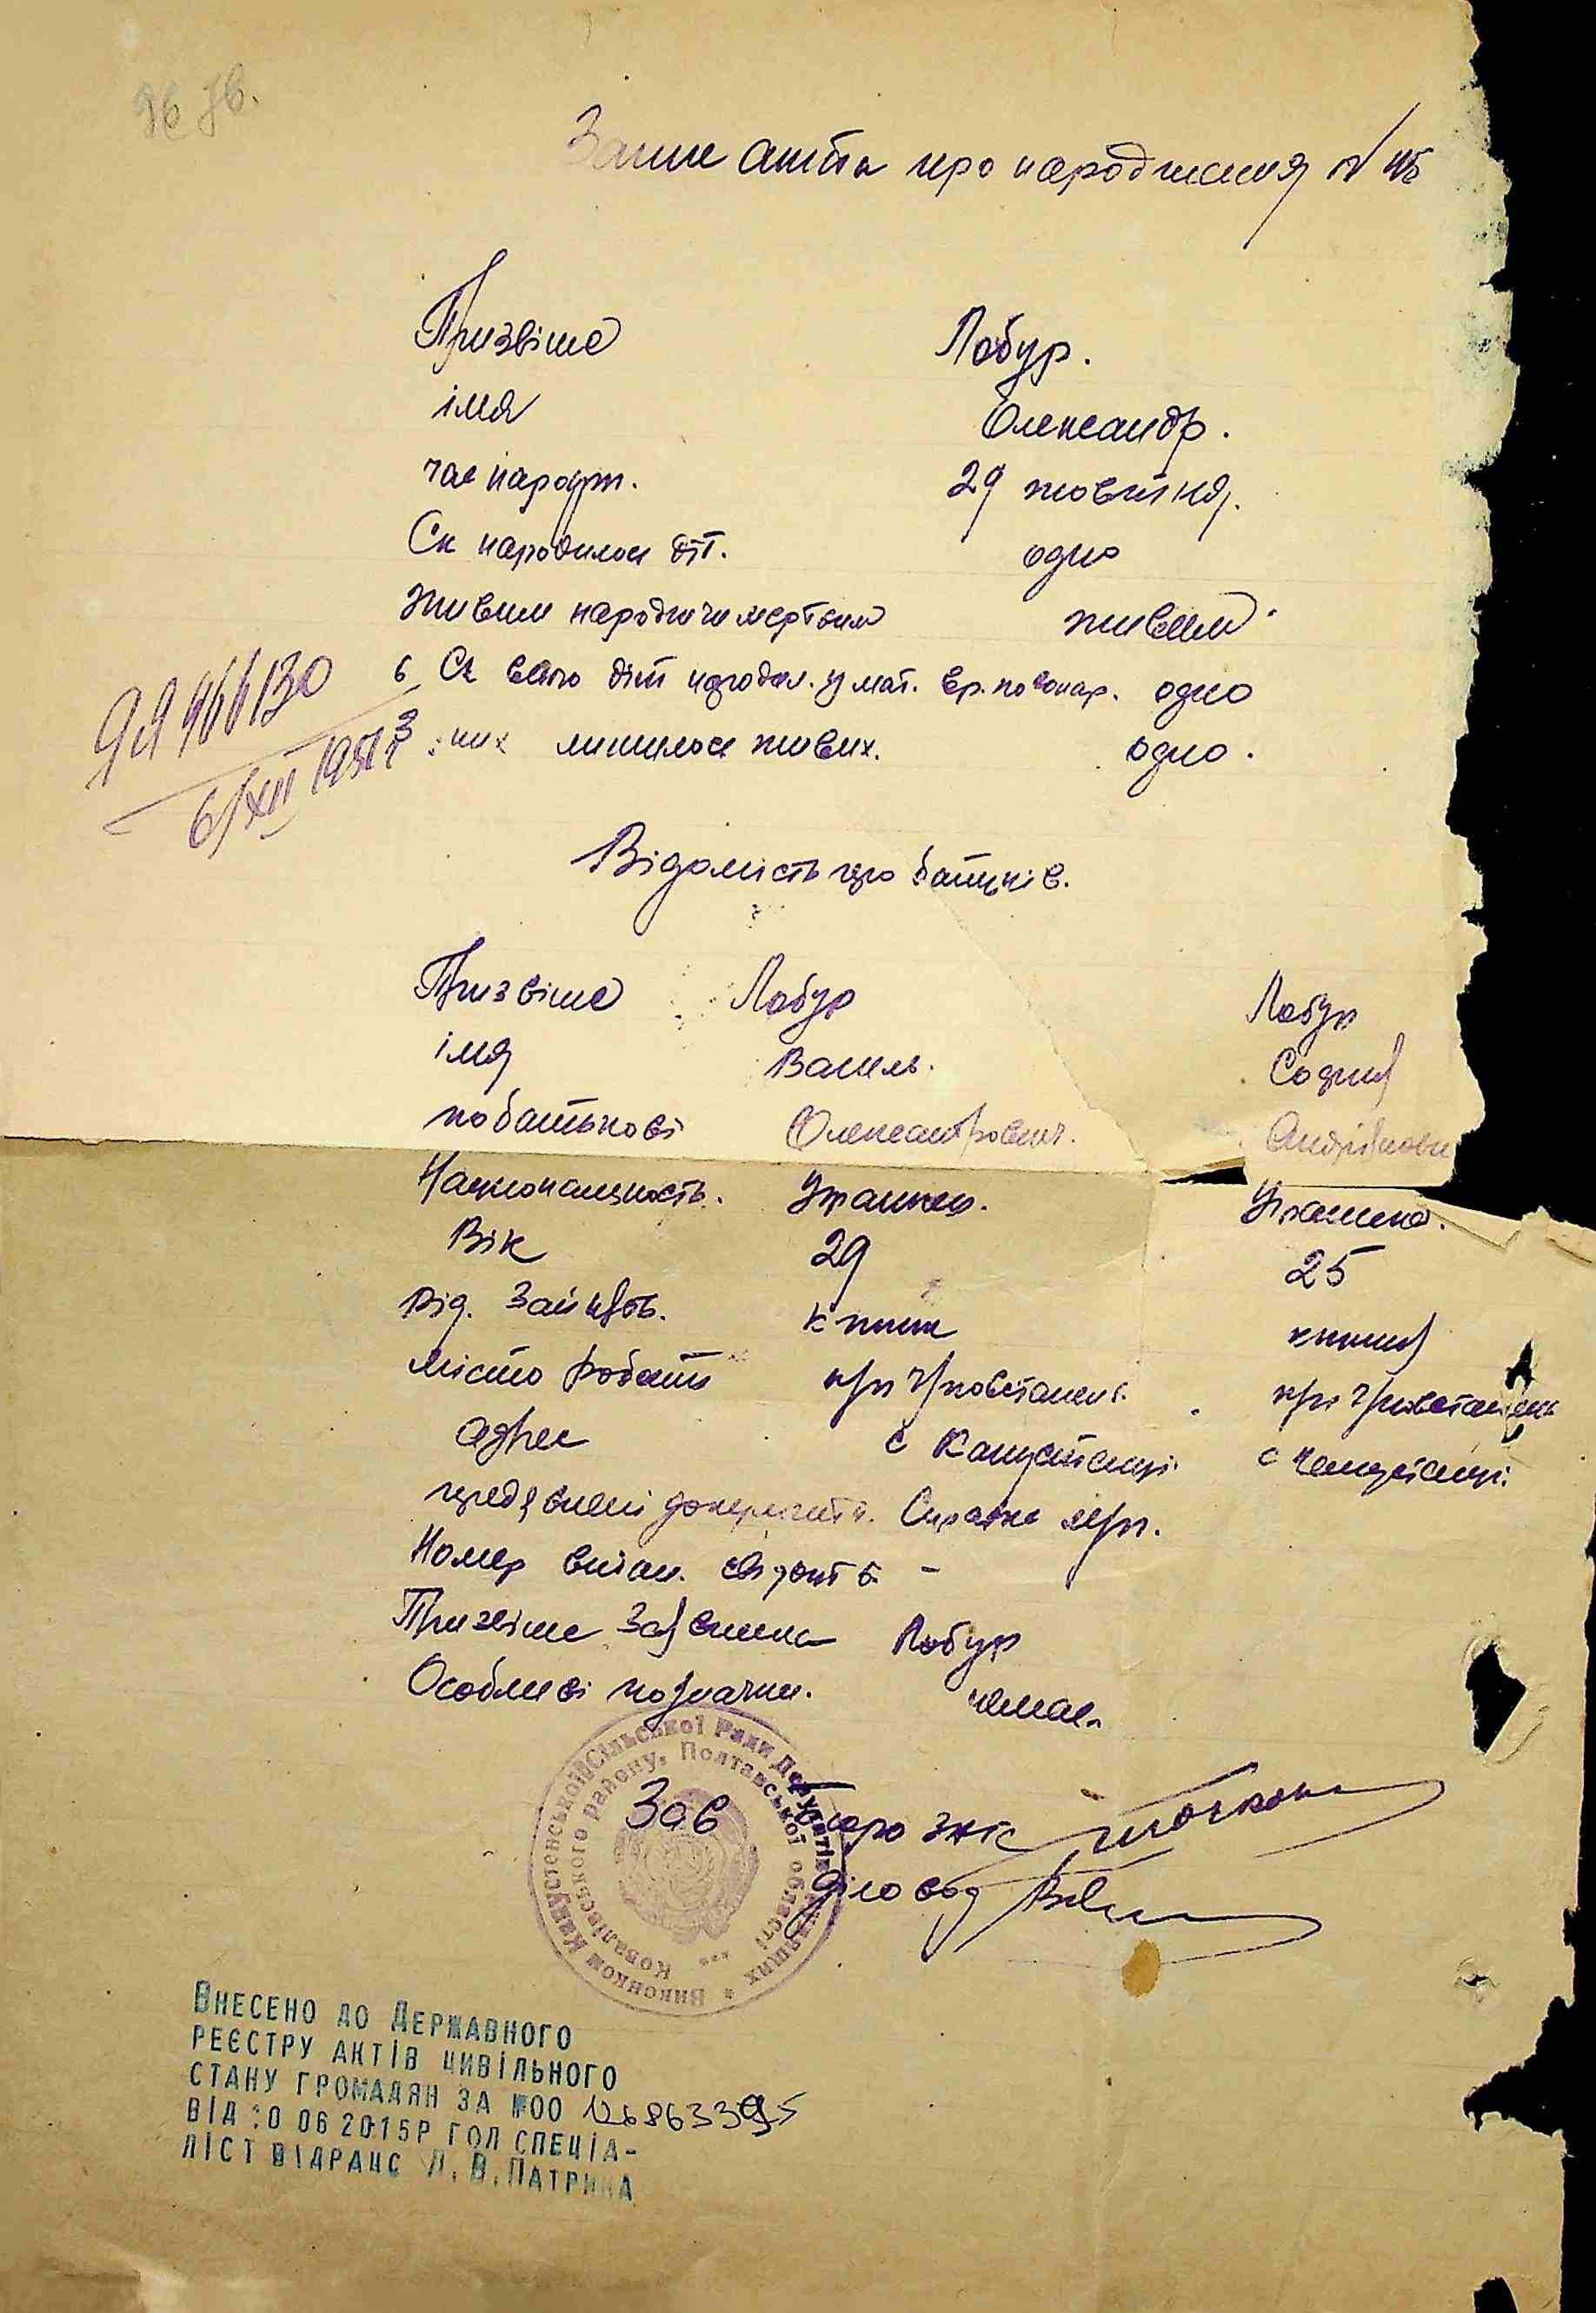 Запис акта про народження N 45
Призвіще Лобур.
імя Олександр.
час народж. 29 жовтня.
Ск народилося діт. одно
живим народж чи мертвим живим
6 Ск всього діт народил. у мат. вр. новонар. одно
з них лишилося живих. одно.
ЯЯ 466130
6/XII 1951
Відомість про батьків.
Призвіще Лобур Лобур
імя Василь. Софія
по батькові Олександрович. Андріївна
Національность. Українец. Українка.
Вік 29 25
Від. Занят.
місто роботи к/г Ч/повстанець к/г Ч/повстанець
адрес с Капустинці с Капустинці
предявлені документи. Справка
Номер свідоцтв. -
Призвіще Заявника Лобур
Особливі позначки. немає.
Зав бюро ЗАГС
Діловод
Виконком Капустенської Сільської Ради Депутатів Трудящих
Ковалівського району, Полтавської області
Внесено до Державного
реєстру актів цивільного
стану громадян за №00 126863395
від 0 06 2015р гол спеціа-
ліст ВДРАЦС Л.В.Патрина